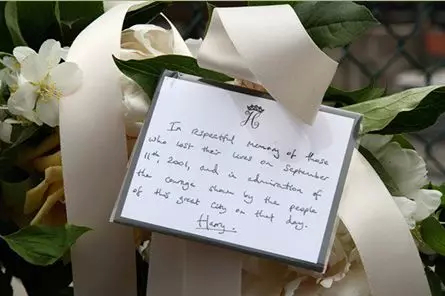 H
In respectful memory of those
who lost their lives on September
11th, 2001, and in admiration of
the courage shown by the people
of this great city on that day.
Harry.